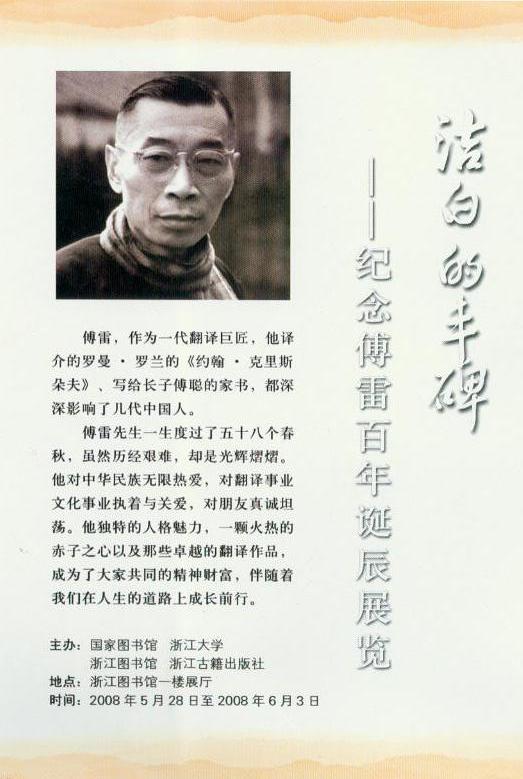 洁白的丰碑
——纪念傅雷百年诞辰展览
傅雷，作为一代翻译巨匠，他译
介的罗曼·罗兰的《约翰·克里斯
朵夫》、写给长子傅聪的家书，都深
深影响了几代中国人。
傅雷先生一生度过了五十八个春
秋，虽然历经艰难，却是光辉熠熠。
他对中华民族无限热爱，对翻译事业
文化事业执着与关爱，对朋友真诚坦
荡。他独特的人格魅力，一颗火热的
赤子之心以及那些卓越的翻译作品，
成为了大家共同的精神财富，伴随着
我们在人生的道路上成长前行。
主办：国家图书馆 浙江大学
浙江图书馆 浙江古籍出版社
地点：浙江图书馆一楼展厅
时间：2008年5月28日至2008年6月3日